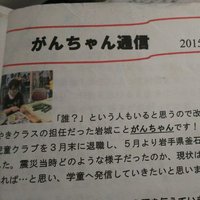 がんちゃん通信
2015
「誰？」という人もいると思うので改
やきクラスの担任だった岩城ことがんちゃんです！
児童クラブを3月末に退職し、5月より岩手県釜石
た。震災当時どのような様子だったのか、現状は
れば…と思い、学童へ発信していきたいと思いま